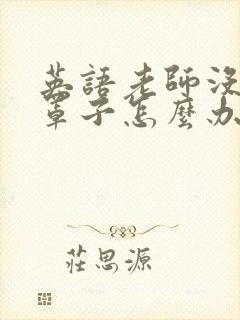 英語老師沒
罩子怎麼办
莊思源